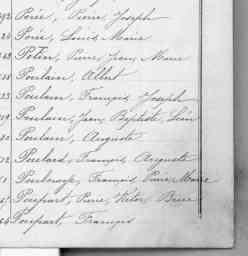 292 Porée, Pierre Joseph
Porée, Louis Marie
Potier, Pierre Jean Marie
Poulain, Albert
Poulain, François Joseph
Poulain, Jean Baptiste
Poulain, Auguste
Poulard, François Auguste
François Marie
Poupart, Pierre Victor
Poupart, François